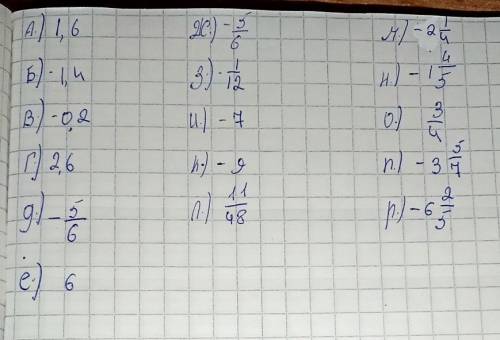 А.) 1,6
Б.) -1,4
В.) -0,2
Г.) 2,6
д.) -5/6
е.) 6
Ж.) -5/6
З.) -1/12
И.) -7
К.) -9
Л.) 11/48
М.) -2 1/4
Н.) -1 4/5
О.) 3/4
П.) -3 5/7
Р.) -6 2/5